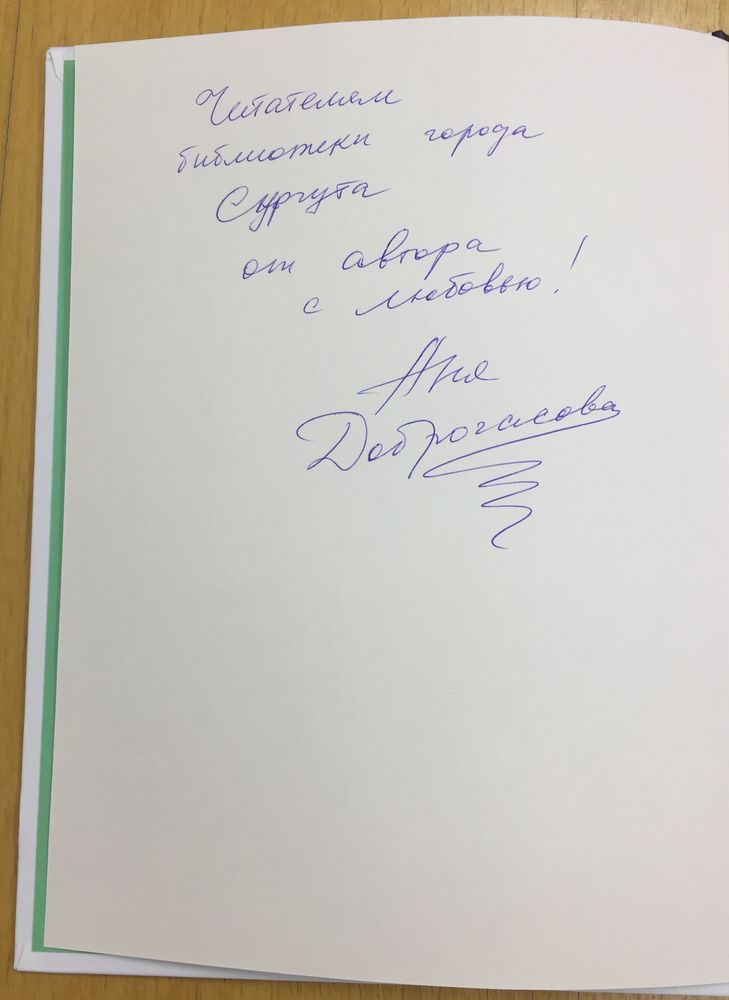 Читателям
библиотеки города
Сургута
от автора
с любовью!
Аня
Доброчасова